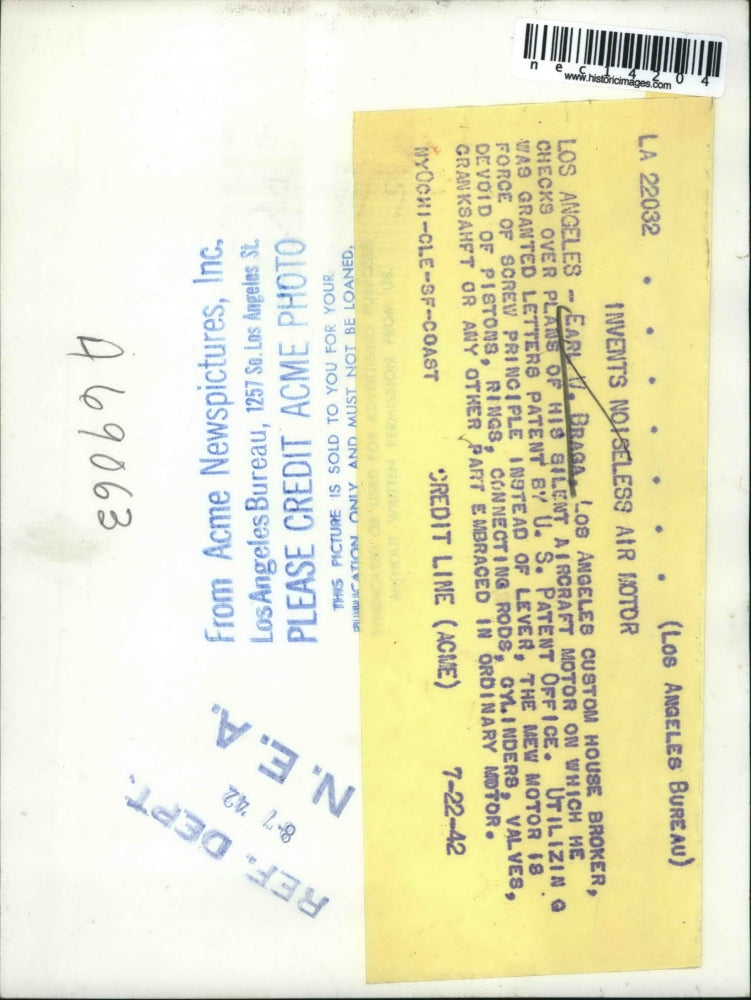 nec14204
www.historicimages.com
LA 22032 . . . . . . (LOS ANGELES BUREAU)
INVENTS NOISELESS AIR MOTOR
LOS ANGELES -- EARL W. BRAGA, LOS ANGELES CUSTOM HOUSE BROKER,
CHECKS OVER PLANS OF HIS SILENT AIRCRAFT MOTOR ON WHICH HE
WAS GRANTED LETTERS PATENT BY U. S. PATENT OFFICE. UTILIZIN G
FORCE OF SCREW PRINCIPLE INSTEAD OF LEVER, THE MEW MOTOR IS
DEVOID OF PISTONS, RINGS, CONNECTING RODS, CYLINDERS, VALVES,
GRANKSAHFT OR ANY OTHER PART EMBRACED IN ORDINARY MOTOR.
NYCCHI-CLE-SF-COAST CREDIT LINE (ACME) 7-22-42
WITHOUT WRITTEN PERMISSION FROM US.
PUBLICATION ONLY AND MUST NOT BE LOANED,
THIS PICTURE IS SOLD TO YOU FOR YOUR
PLEASE CREDIT ACME PHOTO
Los Angeles Bureau, 1257 So. Los Angeles St.
From Acme Newspictures, Inc.
N.E.A.
8-7 '42
REF. DEPT.